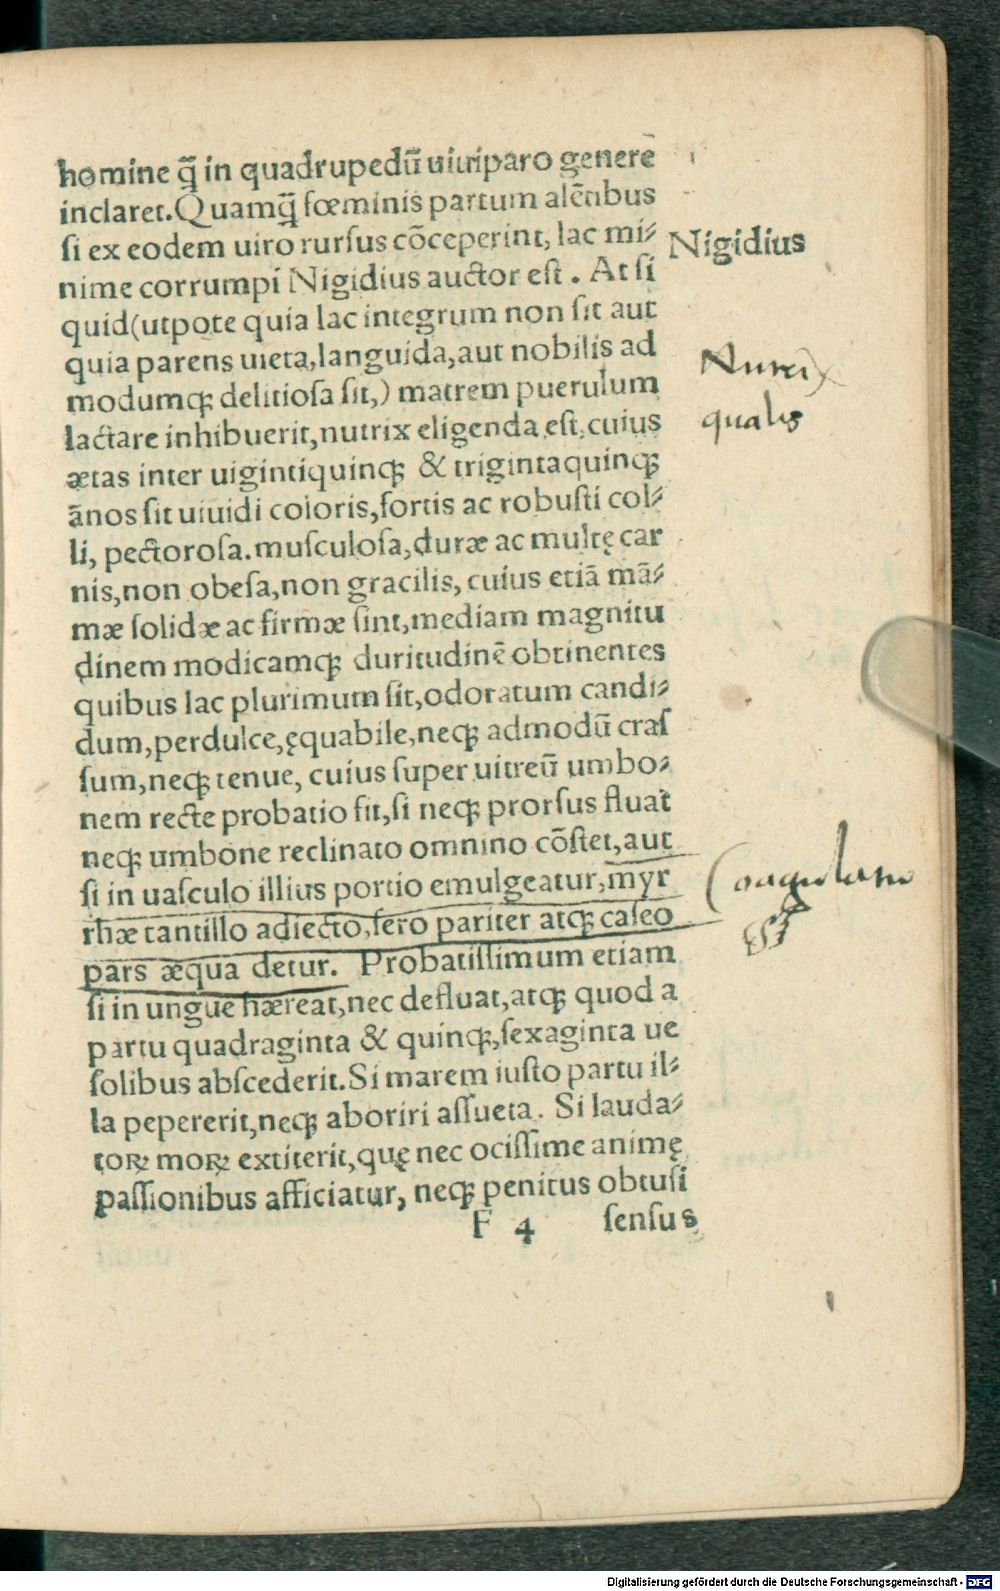 homine q̃ in quadrupedū uiuiparo genere
inclaret. Quamq̃ fœminis partum alētibus
si ex eodem uiro rursus cōceperint, lac mi⸗
Nigidius
nime corrumpi Nigidius auctor est. At si
quid (utpote quia lac integrum non sit aut
quia parens uieta, languida, aut nobilis ad
Nutrix
modumqꝫ delitiosa sit,) matrem puerulum
qualis
lactare inhibuerit, nutrix eligenda est, cuius
ætas inter uigintiquinqꝫ & trigintaquinqꝫ
ānos sit uiuidi coloris, fortis ac robusti col⸗
li, pectorosa. musculosa, duræ ac multę car
nis, non obesa, non gracilis, cuius etiā mā⸗
mæ solidæ ac firmæ sint, mediam magnitu
dinem modicamqꝫ duritudinē obtinentes
quibus lac plurimum sit, odoratum candi⸗
dum, perdulce, ęquabile, neqꝫ admodū cras
sum, neqꝫ tenue, cuius super uitreū umbo⸗
nem recte probatio fit, si neqꝫ prorsus fluat
neqꝫ umbone reclinato omnino cōstet, aut
si in uasculo illius portio emulgeatur, myr
rhæ tantillo adiecto, sero pariter atqꝫ caseo
pars æqua detur. Probatissimum etiam
si in ungue hæreat, nec defluat, atqꝫ quod a
partu quadraginta & quinqꝫ, sexaginta ue
solibus abscederit. Si marem iusto partu il⸗
la pepererit, neqꝫ aboriri assueta. Si lauda⸗
toꝝ moꝝ extiterit, quę nec ocissime animę
passionibus afficiatur, neqꝫ penitus obtusi
F 4 sensus
Digitalisierung gefördert durch die Deutsche Forschungsgemeinschaft - DFG